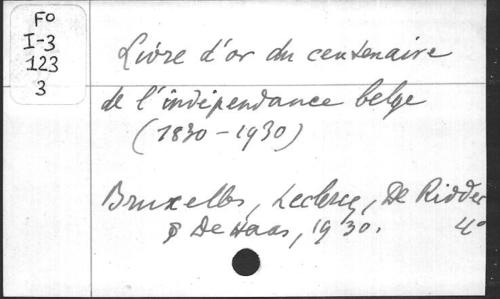 Fo
I-3
123
3
Livre d'or du centenaire
de l'indépendance belge
(1830-1930)
Bruxelles, Leclercq, De Ridder
& De Haas, 1930. 4º